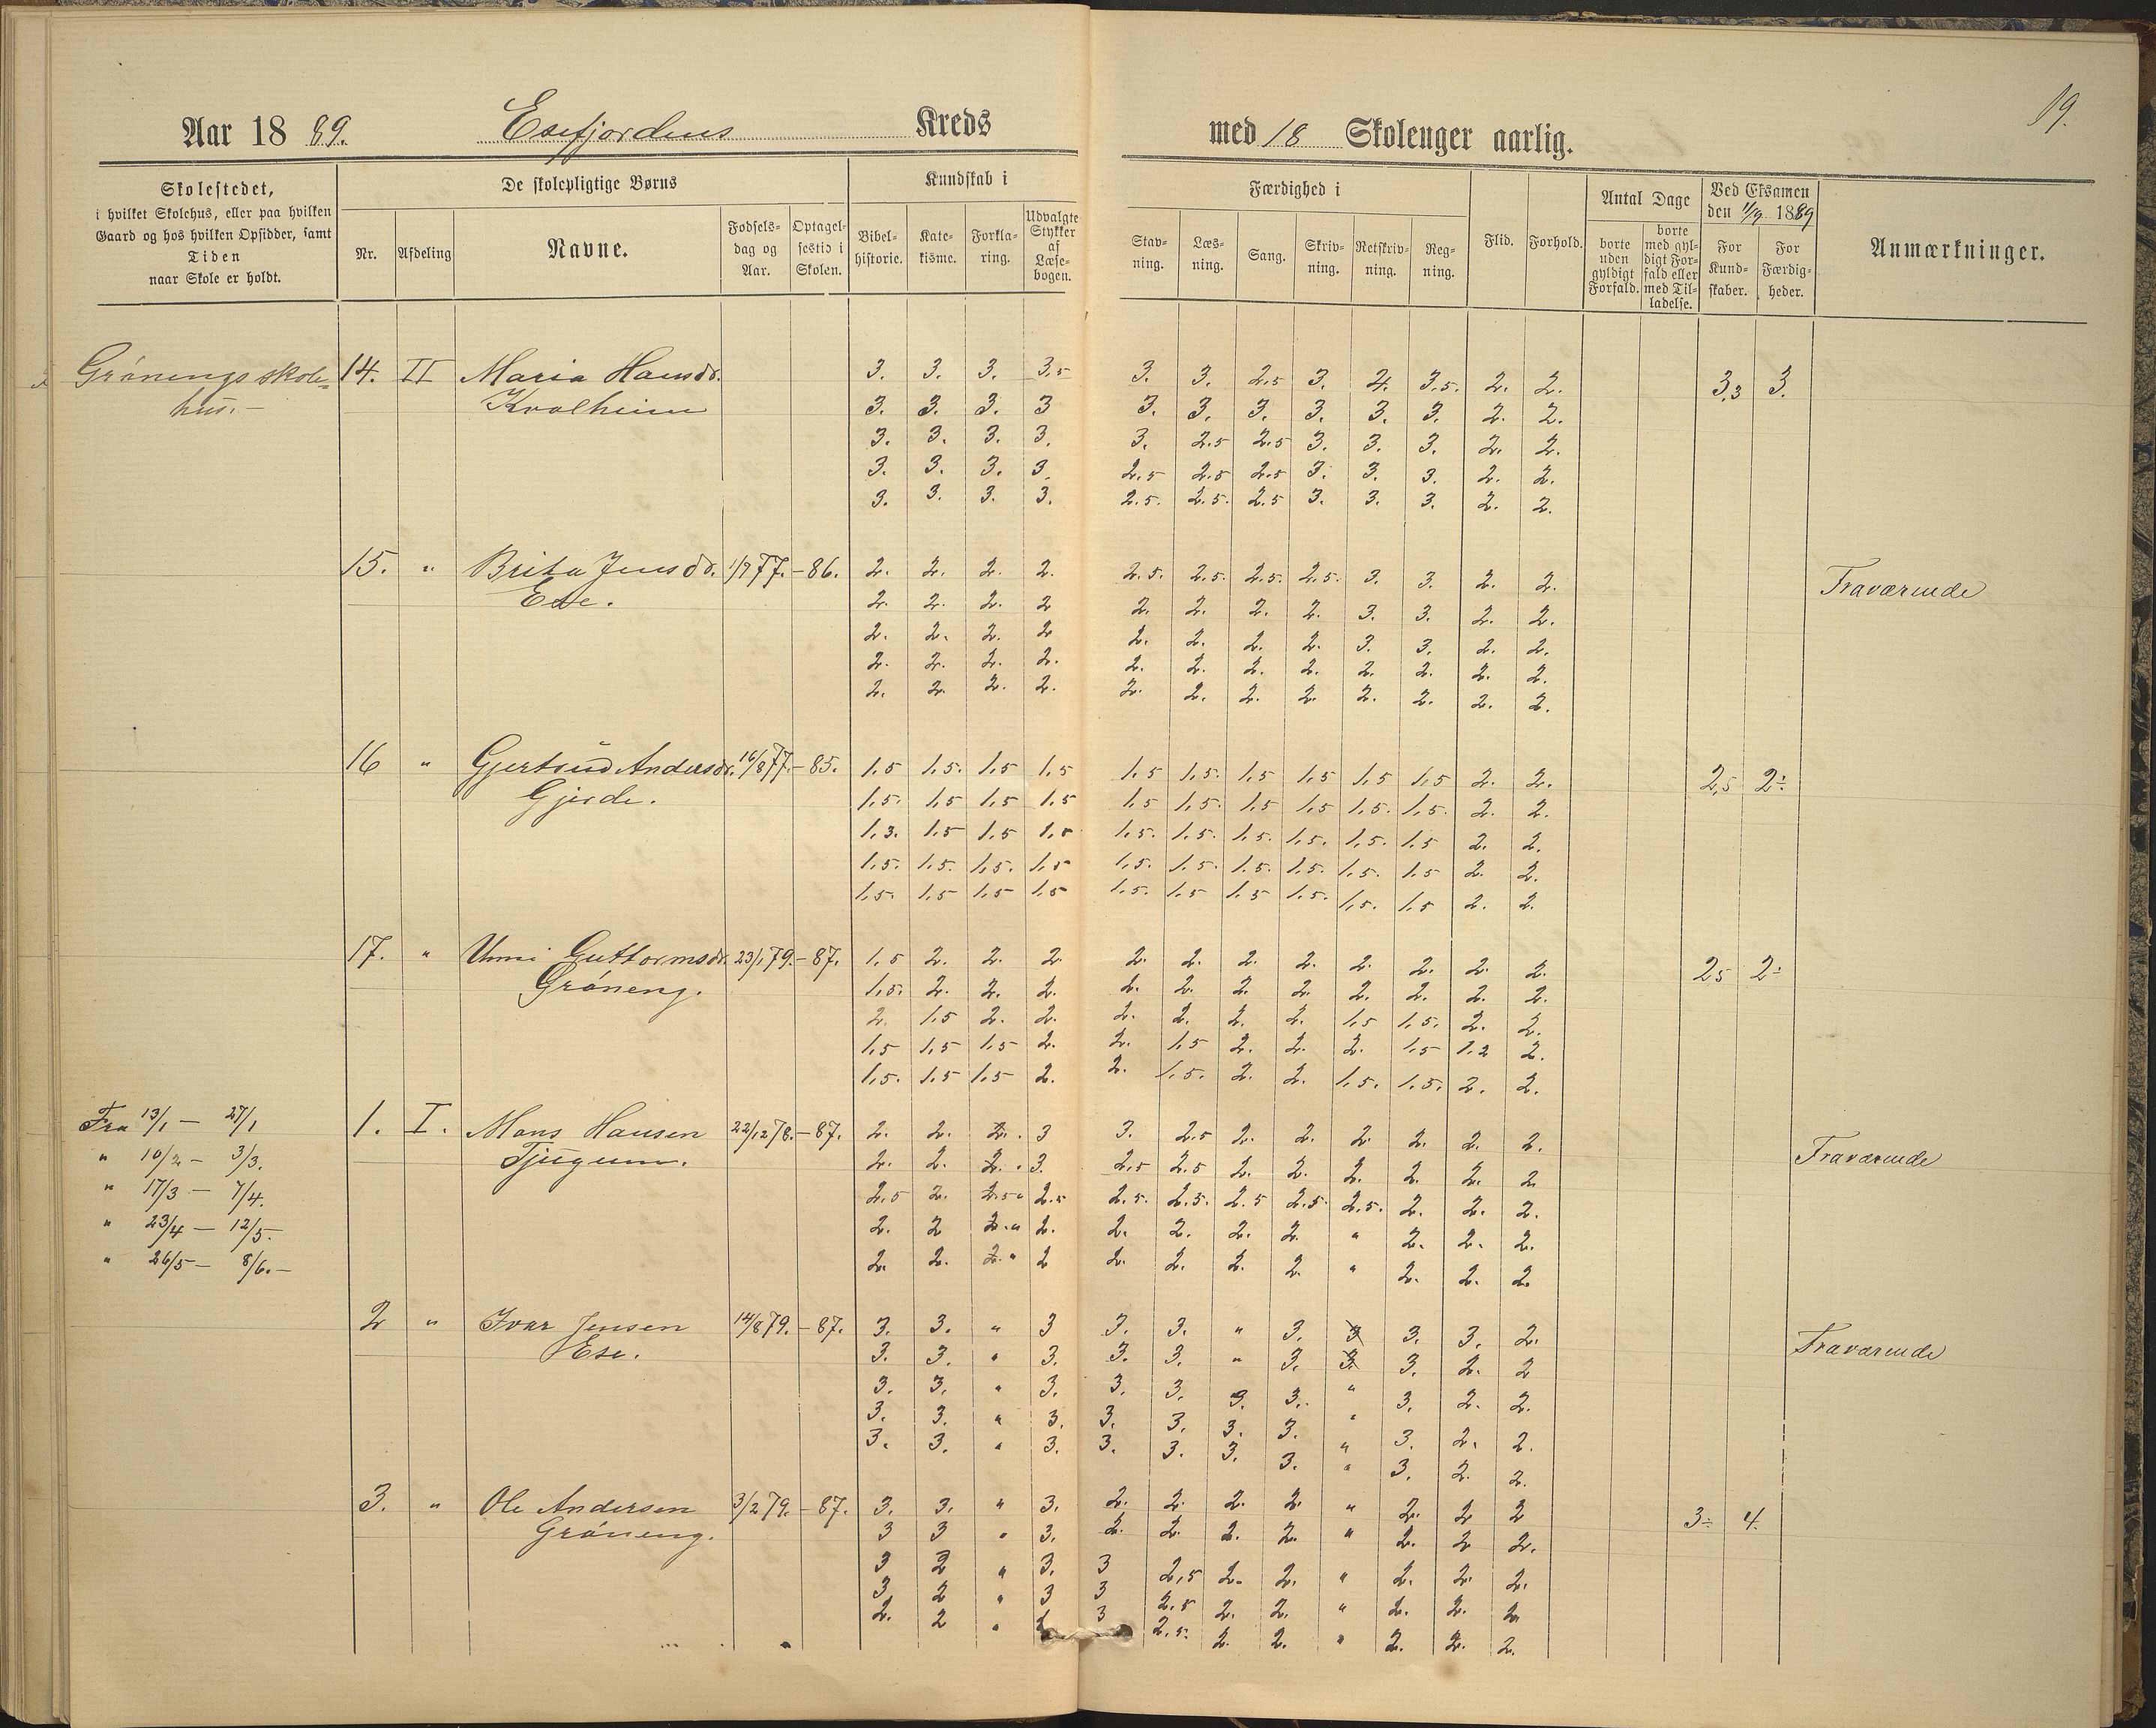 19.
Aar 1889. Esefjordens Kreds med 18 Skoleuger aarlig.
Skolestedet, i hvilket Skolehus, eller paa hvilken Gaard og hos hvilken Opsidder, samt Tiden naar Skole er holdt.
De skolepligtige Børns
Nr. Afdeling Navne. Fødselsdag og Aar. Optagelsestid i Skolen.
Kundskab i
Bibelhistorie. Katekisme. Forklaring. Udvalgte Stykker af Læsebogen.
Færdighed i
Stavning. Læsning. Sang. Skrivning. Retskrivning. Regning.
Flid. Forhold.
Antal Dage
borte uden gyldigt Forfald. borte med gyldigt Forfald eller med Tilladelse.
Ved Eksamen den 1/9 1889
For Kundskaber. For Færdigheder.
Anmærkninger.
Grönengs skole- 14. II Maria Hansdr. 3. 3. 3. 3.5 3. 3. 2.5 3. 4. 3.5. 2. 2. 3.3 3.
hus.- Kvalheim 3. 3. 3. 3 3. 3. 3. 3. 3. 3. 2. 2.
3. 3. 3. 3. 3. 2.5 2.5 3. 3. 3. 2. 2.
3. 3. 3. 3. 2.5 2.5 2.5 3. 3. 3. 2. 2.
3. 3. 3. 3. 2.5. 2.5. 2.5 3. 3. 3. 2. 2.
15. " Brita Jensdr. 1/7 77. - 86. 2. 2. 2. 2. 2.5. 2.5. 2.5. 2.5. 3. 3. 2. 2. Fraværende
Ese. 2. 2. 2. 2 2. 2. 2. 2. 3. 3. 2. 2.
2. 2. 2. 2 2. 2. 2. 2. 3. 3. 2. 2.
2. 2. 2. 2. 2. 2. 2. 2. 2. 2. 2. 2.
2. 2. 2. 2. 2. 2. 2. 2. 2. 2. 2. 2.
16 " Gjertrud Andersdr. 16/8 77. - 85. 1.5 1.5. 1.5 1.5 1.5 1.5. 1.5 1.5 1.5 1.5 2. 2. 2.5 2÷
Gjerde. 1.5. 1.5 1.5 1.5 1.5 1.5. 1.5 1.5 1.5. 1.5. 2. 2.
1.3. 1.5 1.5 1.5 1.5. 1.5. 1.5. 1.5. 1.5. 1.5 2. 2.
1.5. 1.5. 1.5. 1.5 1.5. 1.5. 1.5. 1.5. 1.5. 1.5 2. 2.
1.5. 1.5 1.5 1.5 1.5. 1.5 1.5 1.5. 1.5. 1.5 2. 2.
17. " Unni Guttormsdr. 23/1 79. - 87. 1.5 2. 2. 2. 2. 2. 2. 2. 2. 2. 2. 2. 25 2÷
Gröneng. 1.5. 2. 2. 2. 2. 2. 2. 2. 2. 2. 2. 2.
2. 1.5 2. 2. 2. 2. 2. 2. 1.5 1.5. 2. 2.
1.5 1.5 1.5 2. 2. 1.5 2. 2. 2. 1.5 1.2 2.
1.5. 1.5 1.5 2. 2. 1.5. 2. 2. 1.5. 1.5. 2. 2.
Fra 13/1 - 27/1 1. I. Mons Hansen 22/12 78. - 87. 2. 2. 2. 3 3. 2.5 2. 2. 2. 2. 2. 2. Fraværende
" 10/2 - 3/3. Tjugum. 2. 2. 2. 3. 2.5 2.5 2. 2. 2. 2. 2. 2.
" 17/3 - 7/4. 2.5 2. 2.5 " 2.5 2.5. 2.5. 2.5 2.5. 2.5. 2. 2. 2.
" 23/4 - 12/5. 2. 2 2. " 2. 2. 2. 2. 2. " 2. 2. 2.
" 26/5 - 8/6. - 2. 2. 2. " 2 2. 2. 2. 2. " 2. 2. 2.
2 " Ivar Jensen 14/8 79. - 87. 3. 3. " 3 3. 3. " 3. 3 3. 3. 2. Fraværende
Ese. 3. 3. " 3. 3. 3. " 3. 3. 3. 2. 2
3. 3. " 3. 3. 3. 3. 3. " 3. 2. 2.
3. 3. " 3. 3. 3. 3. 3. " 3. 2. 2.
3. 3. " 3. 3. 3. 3. 3. " 3. 2. 2.
3. " Ole Andersen 3/2 79. - 87. 3. 3. " 3. 2. 2. 2. 2. " 2. 2 2 3÷ 4.
Gröneng. 3 3 " 3. 2. 2. 2. 2. " 2. 2 2.
3 2 " 3. 3 2,5 2. 2. " 2. 2. 2.
3. 2 " 3 3 2.5 2. 2. " 2. 2. 2.
2. 2 " 3 2.5. 2. 2. " 2. 2. 2.